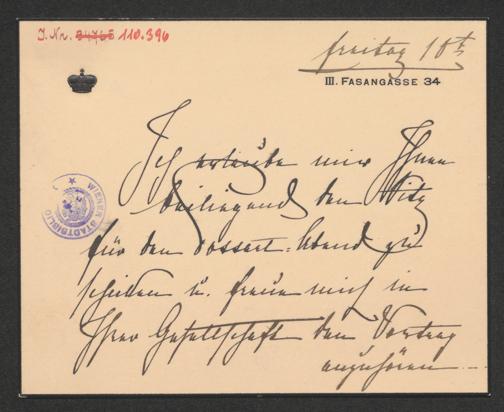 J. Nr. 34765 110.396
freitag 18t
III. FASANGASSE 34
WIENER STADTBIBLIO
Ich erlaube mir Ihnen
beiliegend den Sitz
für den Possart-Abend zu
schicken u. freue mich in
Ihrer Gesellschaft den Vortrag
anzuhören